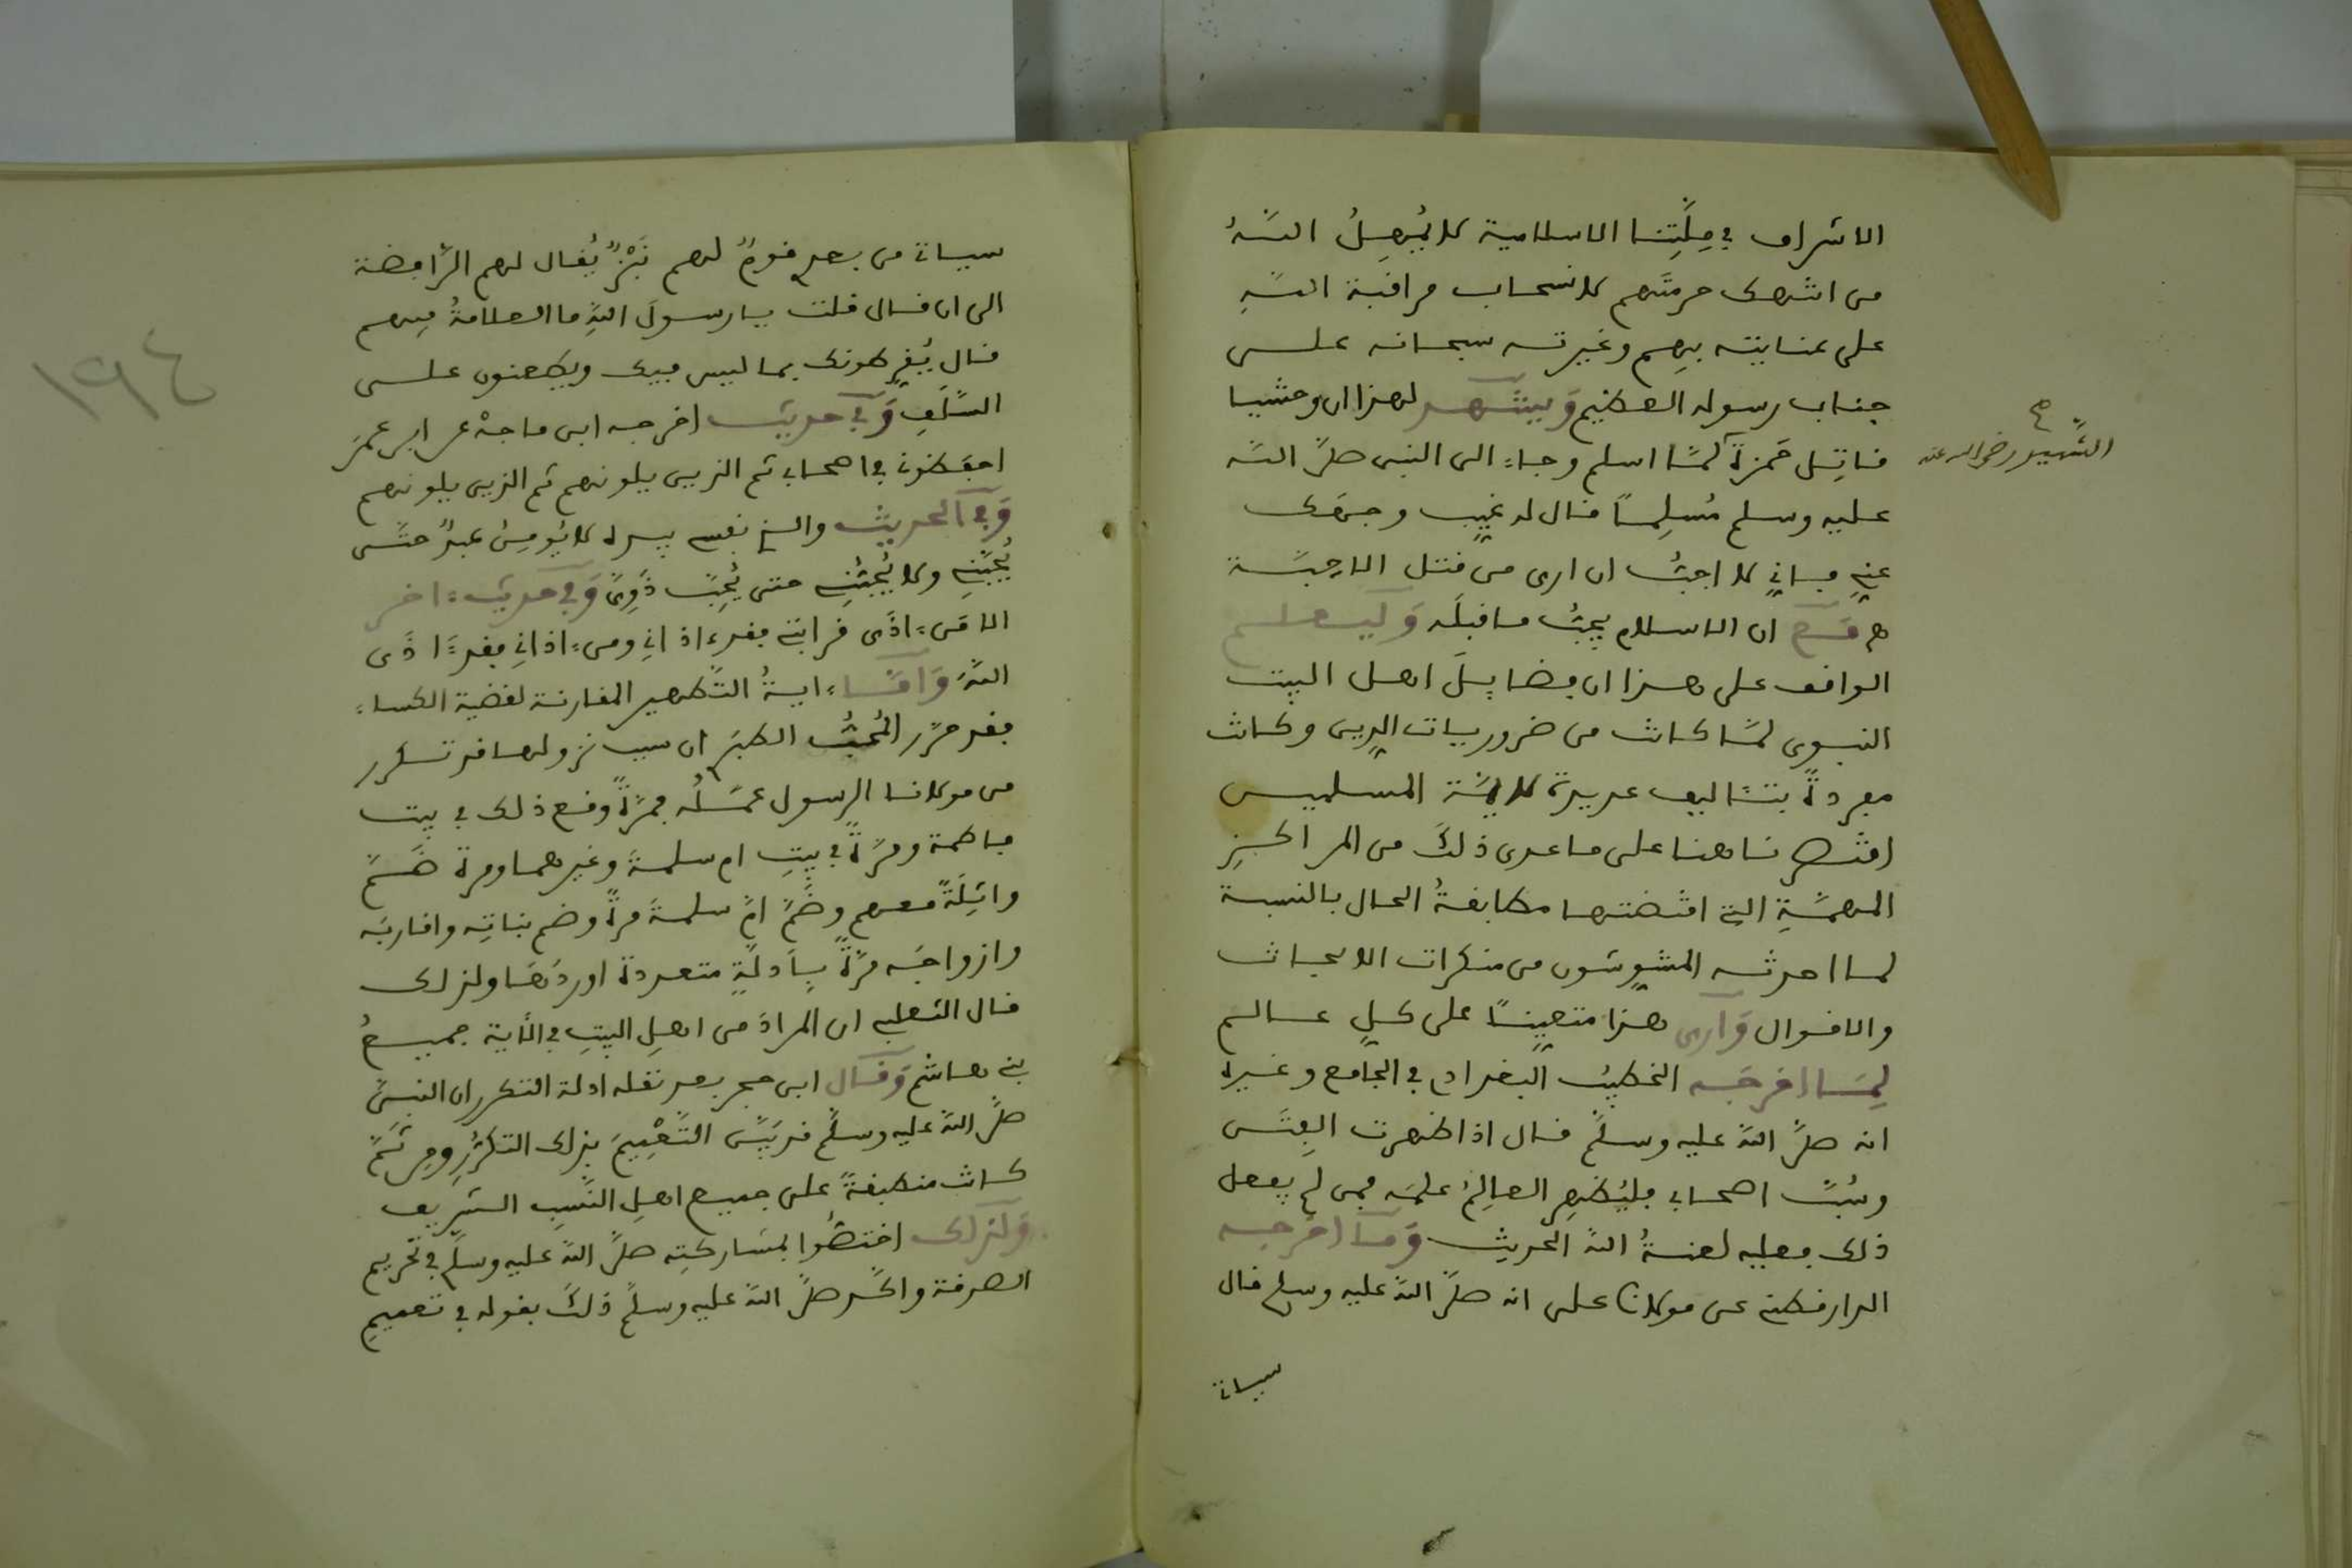 الاشراف في مِلَّتِنا الاسلامية لا يُمْهِلُ اللهُ
من انتهك حرمتَهم لانسحاب مراقبة اللهِ
على عنايته بِهِم وغيرته سبحانه على
جناب رسوله العظيم وَيشهد لهذا ان وحشيا
قاتِل حَمزةَ لمَّا اسلم وجاء الى النبى صلَّى الله
الشَّهِيد رضي الله عنه صح
عليه وسلم مُسْلِماً قال له غيِّب وجهَك
عنِّي فإنِّي لا احبُّ ان ارى من قتل الاحِبَّة
مع ان الاسلام يجبُّ ما قبلَه وَليعلم
الواقف على هذا ان فضايِلَ اهل البيت
النبوى لمَّا كانت من ضروريات الدِين وكانت
مفردةً بتئاليف عديدة لايمَّة المسلمين
اقتصرنا هنا على ما عدى ذلكَ من المراكِزِ
المهمَّةِ التي اقتضتها مطابقةُ الحال بالنسبة
لما احدثه المشوِّشون من منكرات الابحاث
والاقوال وَارى هذا متعيِّناً على كلِّ عالم
لِمَا اخرجَه الخطيبُ البغدادي في الجامع وغيره
انه صلَّى الله عليه وسلَّم قال اذا ظهرت الفِتَن
وسُبَّ اصحابي فليُظهِرِ العالِمُ علمَه فمن لم يفعل
ذلك فعليه لعنةُ الله الحديث وَمَا اخرجه
الدارقطني عن مولانا على انه صلَّى الله عليه وسلم قال
سياتي
سياتي من بعدي قومٌ لهم نَبْزٌ يُقال لهم الرَّافضة
الى ان قال قلت يا رسولَ اللهِ ما العلامةُ فيهم
قال يُفرِطونك بما ليس فيك ويطعنون على
السَّلَفِ وَفي حديث اخرجه ابن ماجهْ عن ابن عمرَ
احفظوني في اصحابي ثم الذين يلونهم ثم الذين يلونهم
وَفي الحديث والذي نفسي بيده لا يُومِنُ عبدٌ حتَّى
يُحِبَّنِي ولا يُحِبُّنِي حتى يُحِبَّ ذَوِيَّ وَفي حديث اخر
الا مَن اذَى قرابتي فقد اذاني ومن اذاني فقد اذَى
اللهَ وَامَّا ايةُ التَّطهير المقارنة لقضية الكساء
فقد حرَّر المُحِبُّ الطبَرِي ان سبب نزولها قد تكرر
من مولانا الرسول عمَلُه فمرَّةً وقع ذلك في بيت
فاطمة ومرَّةً في بيتِ ام سلمةَ وغيرهما ومرة ضَمَّ
واثِلَةَ معهم وضَمَّ امَّ سلمةَ مرةً وضم بناتِه واقاربَه
وازواجَه مرَّةً بِأدلَّةٍ متعددة اوردَهَا ولذلك
قال الثعلبي ان المرادَ من اهلِ البيتِ في الأية جميعُ
بني هاشم وَقال ابن حجر بعد نقله ادلة التكرر ان النبيَّ
صلَّى الله عليه وسلَّم قد بَيَّن التَّعْمِيمَ بذلك التكرُّرِ ومِن ثَمَّ
كانت منطبقةً على جميع اهلِ النَّسَبِ الشَّرِيف
وَلذلك اختصُّوا بمشاركتِه صلَّى الله عليه وسلَّم في تحريم
الصدقة واكَّد صلَّى الله عليه وسلَّم ذلكَ بقوله في تعميمِ
١٩٤